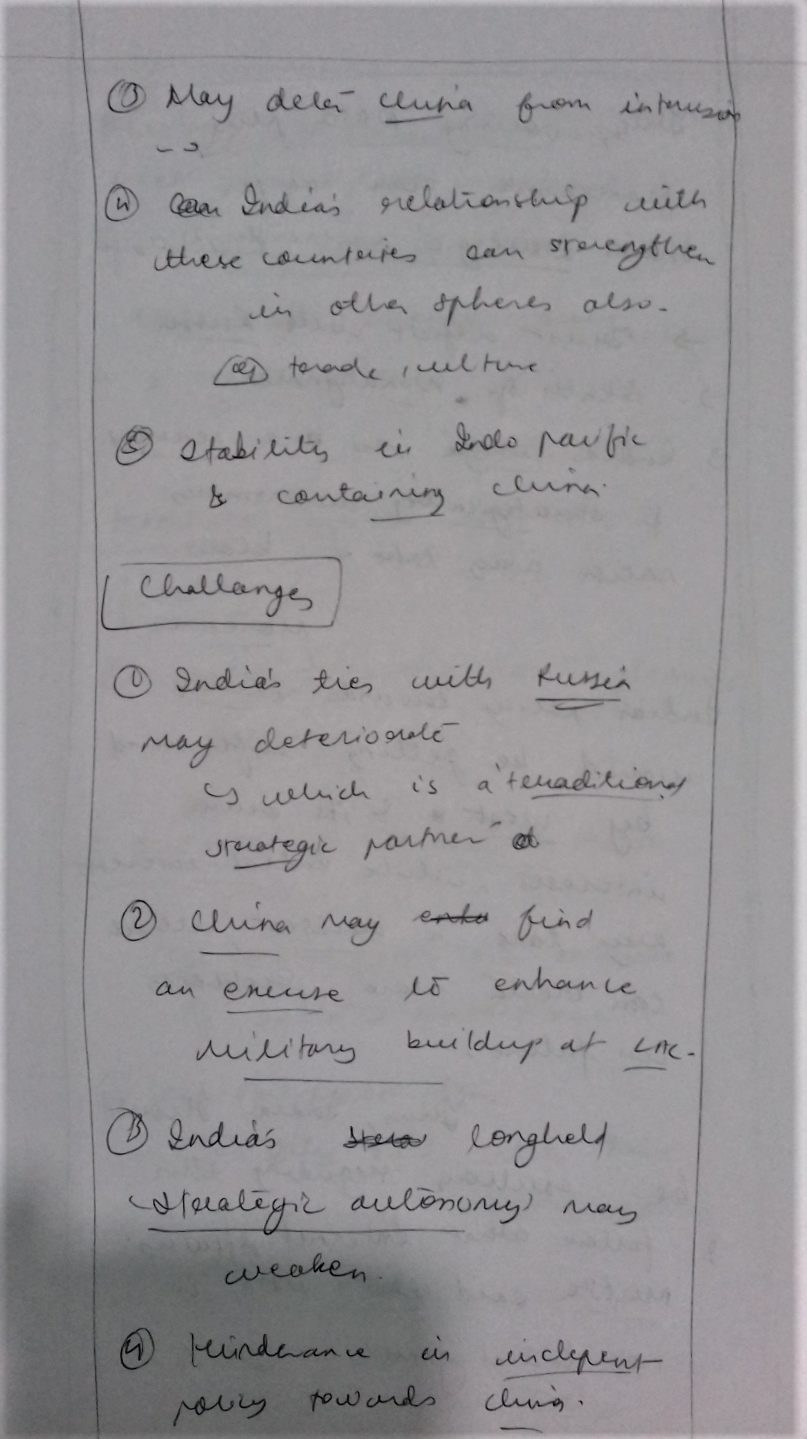 ③ May deter China from intrusion
④ India's relationship with
these countries can strengthen
in other spheres also.
eg trade, culture
⑤ Stability in Indo pacific
& containing China.
Challanges
① India's ties with Russia
may deteriorate
↳ which is a 'traditional
strategic partner'
② China may find
an excuse to enhance
military buildup at LAC.
③ India's longheld
'strategic autonomy' may
weaken.
④ Hinderance in indepent
policy towards China.